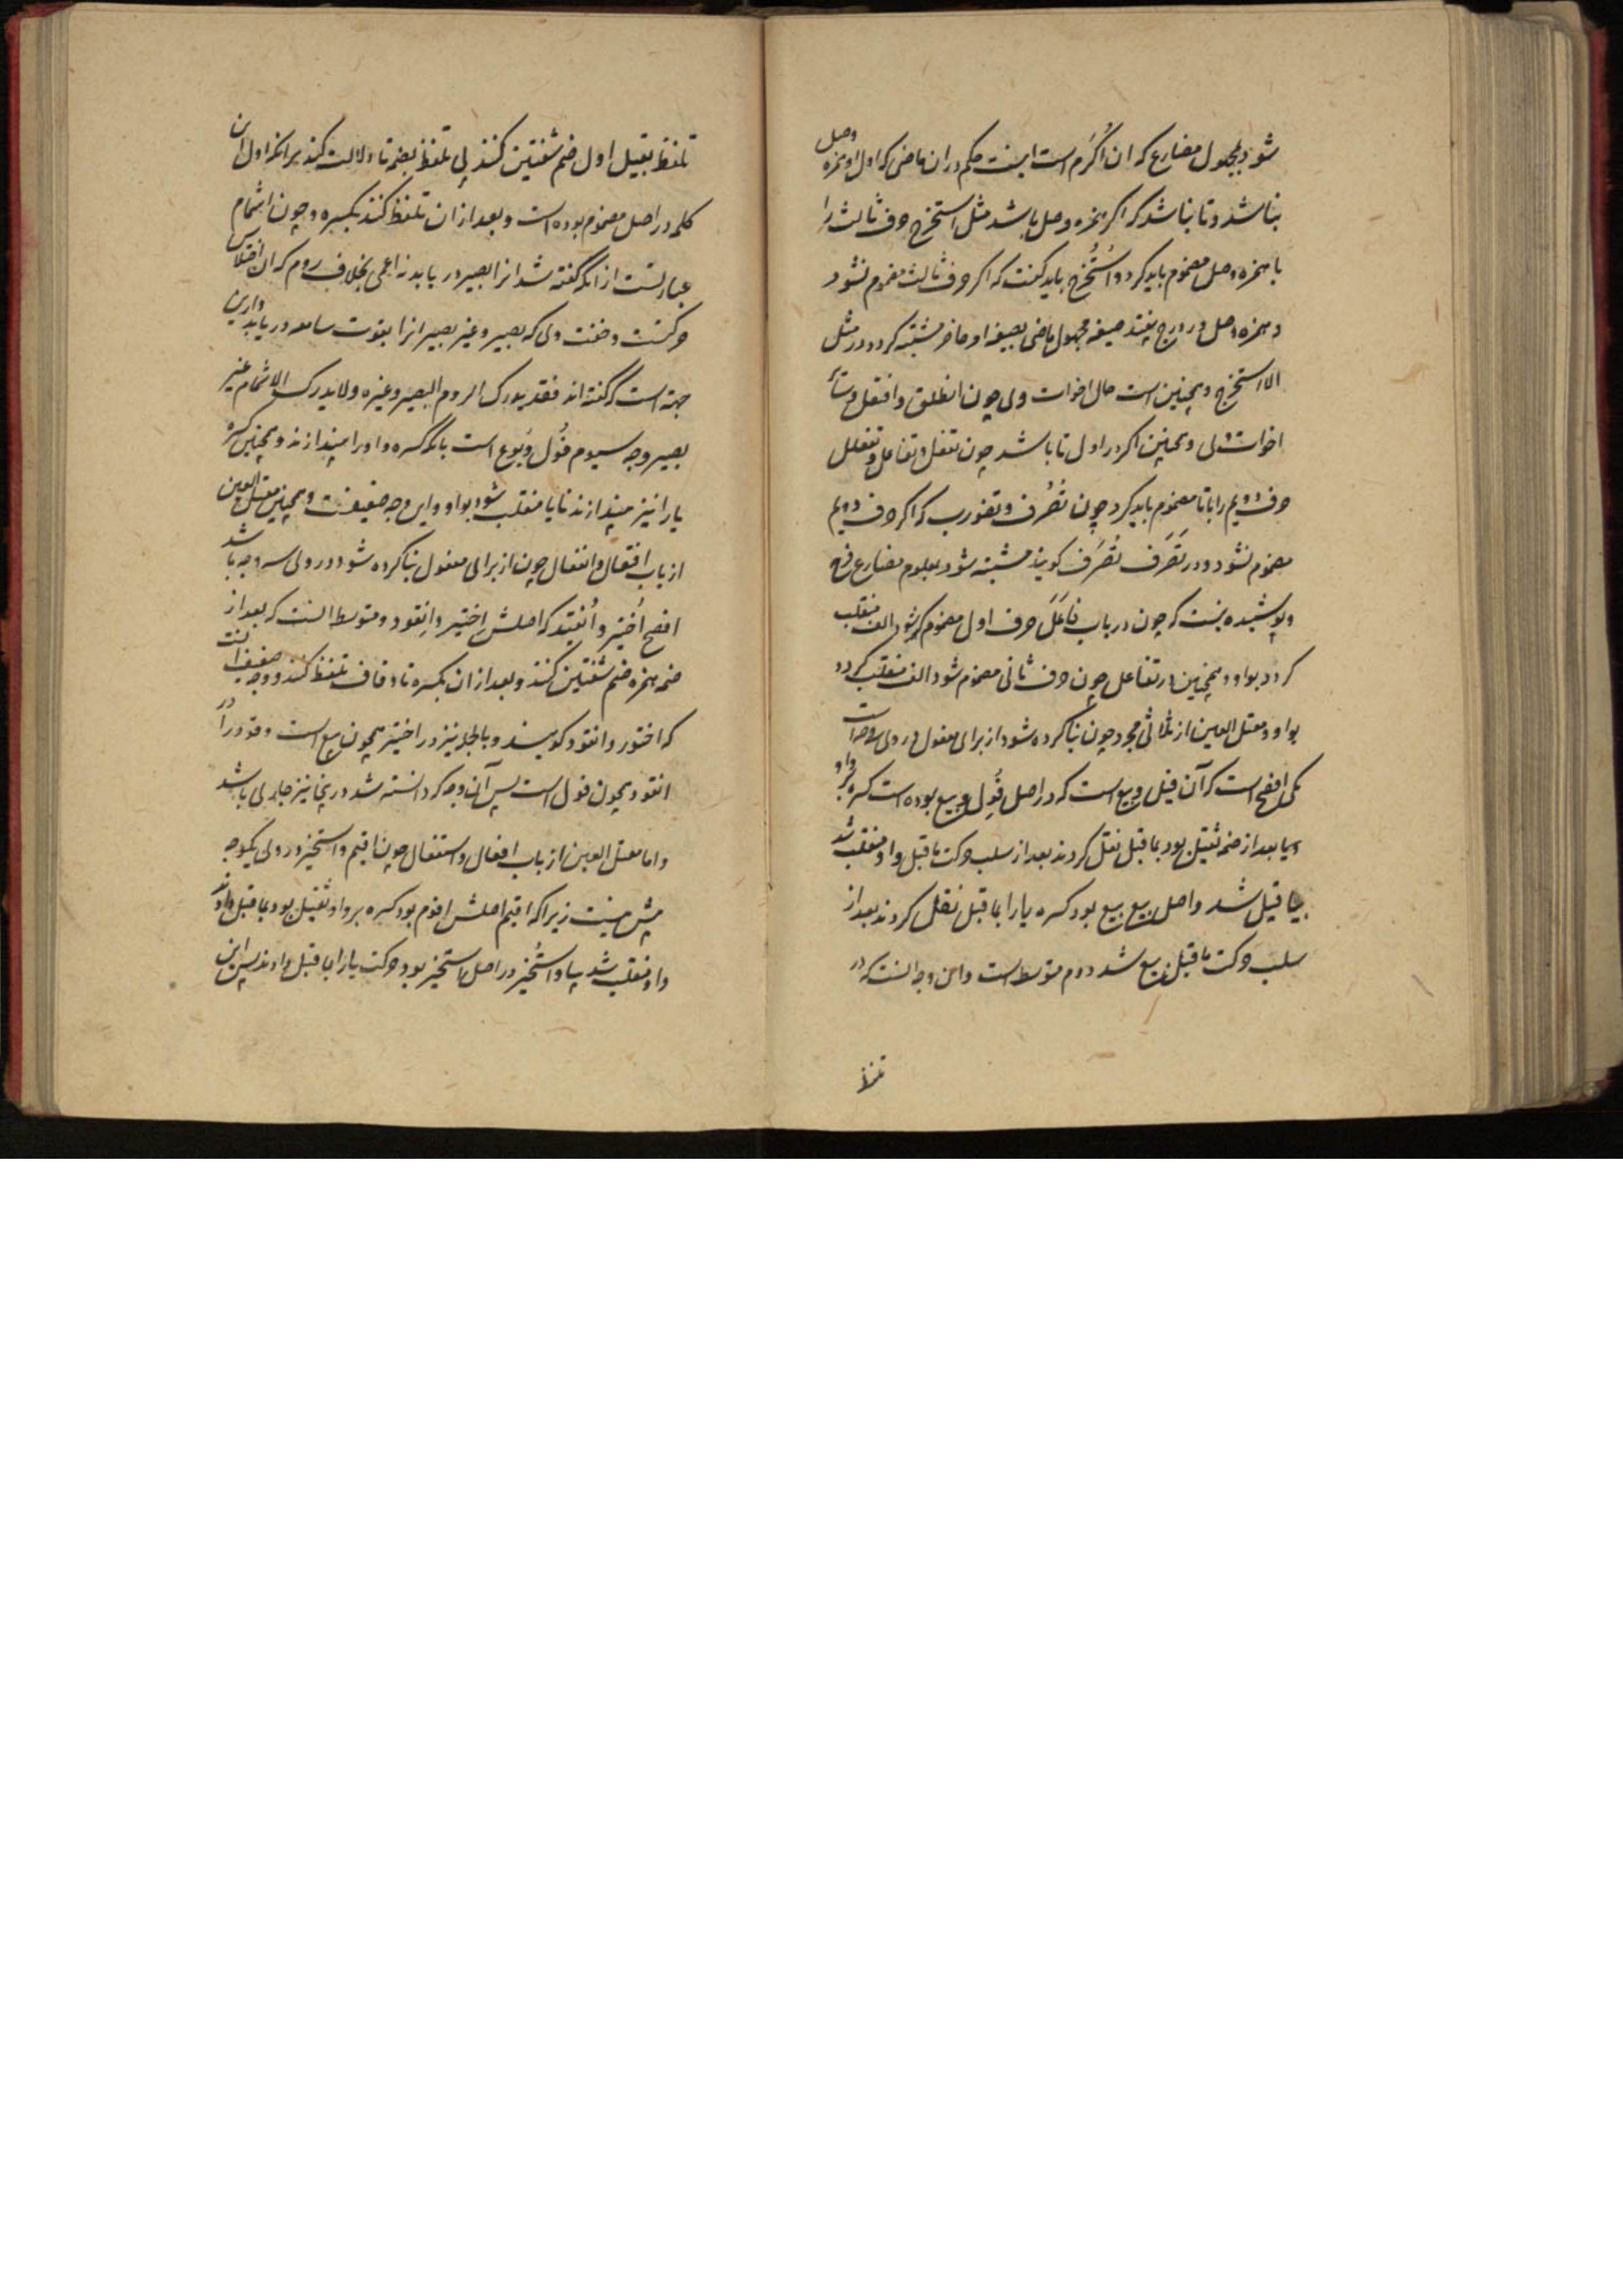 شود بمجهول مضارع که ان اُکرَم است اینست حکم در ان ماضی که اول او همزه وصل
نباشد و تا نباشد که اکر همزه وصل باشد مثل استخرج حرف ثالث را
با همزه وصل مضموم باید کرد و اُستُخرج باید کفت که اکر حرف ثالث مضموم نشود
و همزه وصل در درج بیفتد صیغه مجهول ماضی بصیغه امر حاضر مشتبه کردد در مثل
الا استخرج و همچنین است حال اخوات وی چون انطلق و افتعل و سائر
اخوات وی و همچنین اکر در اول تا باشد چون تفعل و تفاعل و تفعلل
حرف دویم را با تا مضموم باید کرد چون تُصُرف و تضورب که اکر حرف دویم
مضموم نشود و در تَصَرَف تُصَرَف کویند مشتبه شود بمعلوم مضارع
و پوشیده نیست که چون در باب فاعَلَ حرف اول مضموم شود الف منقلب
کردد بواو و همچنین در تفاعل چون حرف ثانی مضموم شود الف منقلب کردد
بواو و معتل العین از ثلاثی مجرد چون بنا کرده شود از برای مفعول در وی سه وجه است
یکی افصح است که آن قیل و بیع است که در اصل قُوِل و بیع بوده است کسره بر واو
و یا بعد از ضمه ثقیل بود بما قبل نقل کردند بعد از سلب حرکت ما قبل واو منقلب شد
بیا قیل شد و اصل بیع بیع بود کسره یا را بما قبل نقل کردند بعد از
سلب حرکت ما قبل بیع شد دوم متوسط است و این وجه انست که در
تلفظ
تلفظ بقیل اول ضم شفتین کنند بی تلفظ بضمه تا دلالت کند بر انکه اول این
کلمه در اصل مضموم بوده است و بعد از ان تلفظ کنند بکسره و چون اشمام
عبارتست از انکه کفته شد انرا بصیر در یابد نه اعمی بخلاف روم که ان اختلاس
حرکتست و خفت ولی که بصیر و غیر بصیر انرا بقوت سامعه دریابد و ازین
جهة است که کفته اند فقد یدرک الروم البصیر و غیره ولا یدرک الاشمام غیر
بصیر وجه سیوم قُول و بُوع است بانکه کسره واو را بیندازند و همچنین کسره
یا را نیز بیندازند تا یا منقلب شود بواو و این وجه ضعیفست و همچنین معتل العین
از باب افتعال و انفعال چون از برای مفعول بنا کرده شود در وی سه وجه باشد
افصح اُختیر و اُنقید که اصلش اختیر و انقود و متوسط انست که بعد از
ضمه همزه ضم شفتین کنند و بعد از ان بکسره تا و قاف تلفظ کنند و وجه ضعیف انست
که اختور و انقود کویند و بالجمله تیز در اختیر همچون بیع است و قود در
انقود همچون قول است پس آن وجه که دانسته شد در اینجا نیز جاری باشد
و اما معتل العین از باب افعال و استفعال چون اقیم و استخیر در وی یکوجه
بیش نیست زیرا که اقیم اصلش اقوم بود کسره بر واو ثقیل بود بما قبل دادند
واو منقلب شد بیا و اُستُخیر در اصل استخیر بود حرکت یا را بما قبل دادند پس این